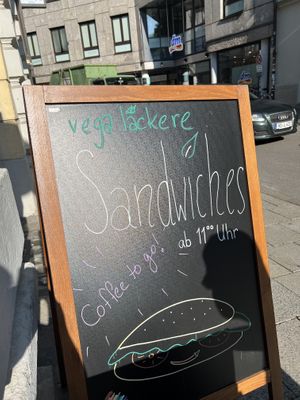 vega läckere
Sandwiches
ab 11⁰⁰ Uhr
Coffee to go!
dm